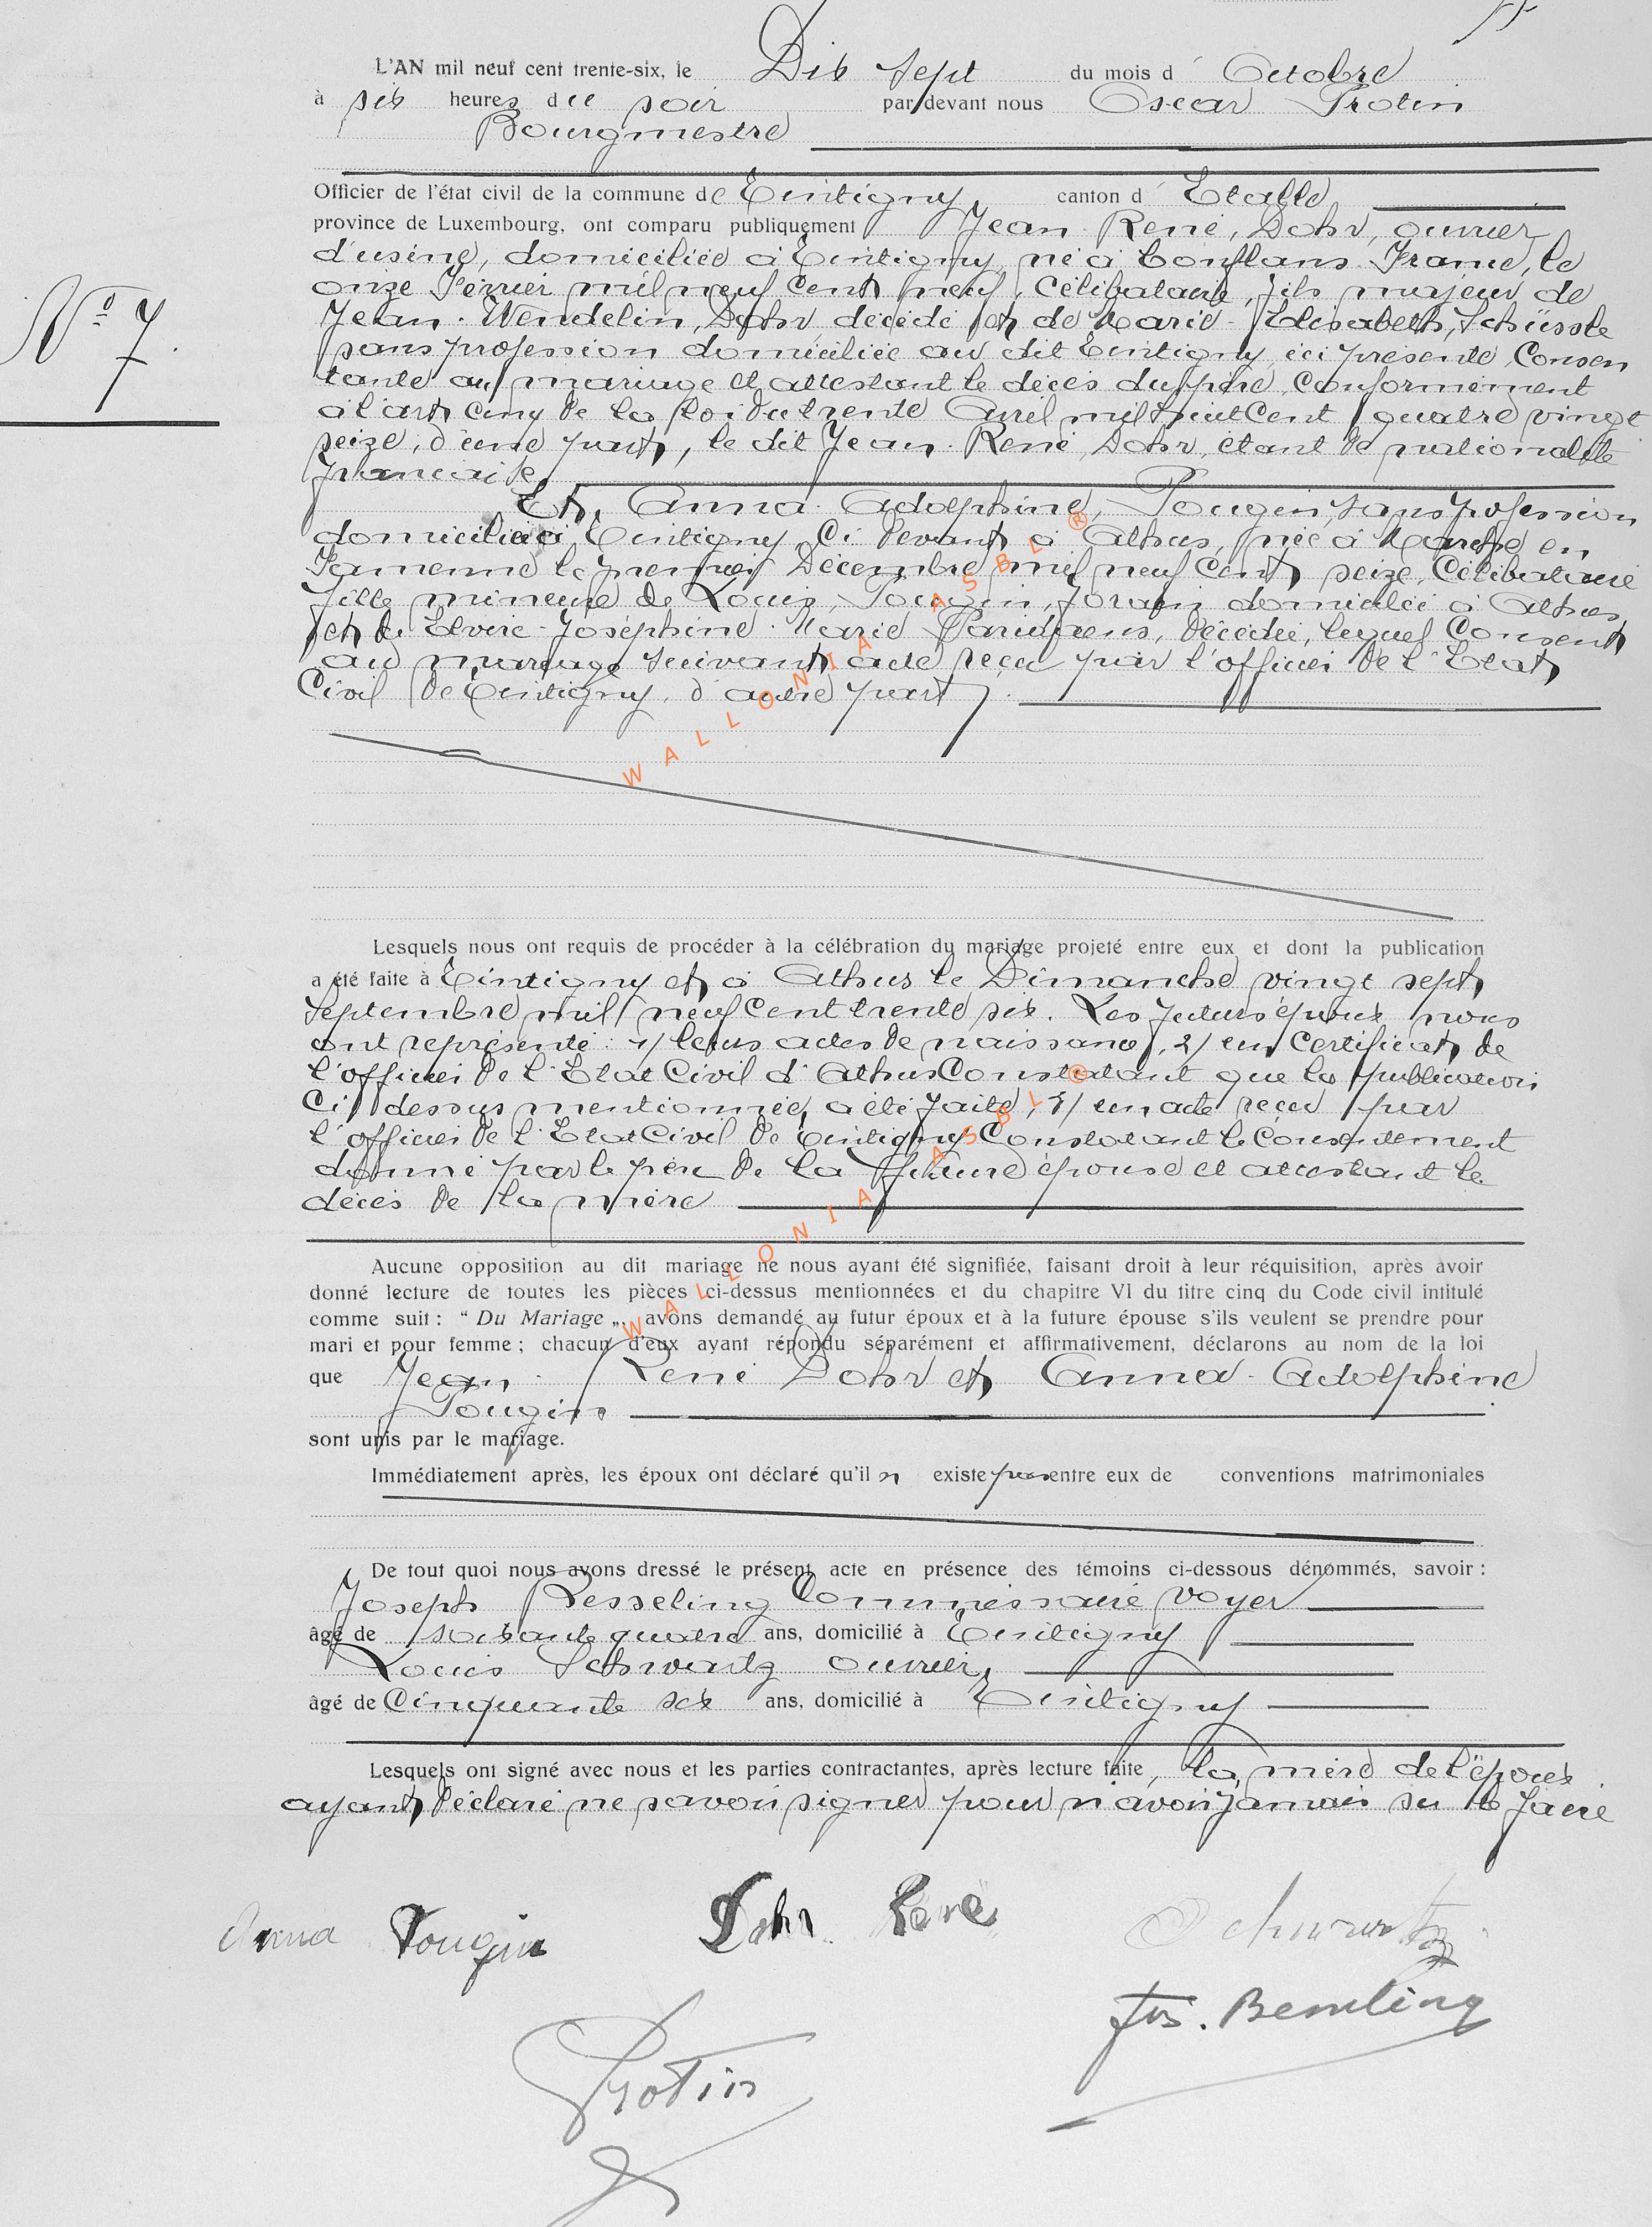 L'AN mil neuf cent trente-six, le Dix sept du mois d' Octobre
à six heures du soir par devant nous Oscar Protin
Bourgmestre
Officier de l'état civil de la commune de Tintigny, canton d' Etalle
province de Luxembourg, ont comparu publiquement Jean René, Dohr, ouvrier
d'usine, domiciliée à Tintigny, né à Conflans France, le
N° 7
onze Février mil neuf cent neuf, Célibataire, fils majeur de
Jean-Wendelin, Dohr décédé et de Marie-Elisabeth,
sans profession domiciliée au dit Tintigny, ici présente, Consen
tante au mariage et attestant le décès du père, Conformément
à l'art cinq de la loi du trente Avril mil huit Cent quatre vingt
seize, d'une part, le dit Jean-René, Dohr, étant de nationalité
française
Et, Anna Adolphine, Pougin, sans profession
domiciliée à Tintigny, Ci devant à Athus, née à Marche en
Famenne le premier Décembre mil neuf Cent seize, Célibataire
fille mineure de Louis, Pougin, forain domicilié à Athus
et de Elvire-Joséphine-Marie, décédée, lequel Consent
au mariage suivant acte reçu par l'officier de l'Etat
Civil de Tintigny, d'autre part
WALLONIA ASBL ®
Lesquels nous ont requis de procéder à la célébration du mariage projeté entre eux et dont la publication
a été faite à Tintigny et à Athus le Dimanche vingt sept
Septembre mil neuf Cent trente six. Les futurs époux nous
ont représenté : 1/ leurs actes de naissance, 2/ un Certificat de
l'officier de l'Etat Civil d'Athus Constatant que la publication
Ci dessus mentionnée, a été faite, 3/ un acte reçu par
l'officier de l'Etat Civil de Tintigny Constatant le Consentement
donné par le père de la future épouse et attestant le
décès de la mère
WALLONIA ASBL ®
Aucune opposition au dit mariage ne nous ayant été signifiée, faisant droit à leur réquisition, après avoir
donné lecture de toutes les pièces ci-dessus mentionnées et du chapitre VI du titre cinq du Code civil intitulé
comme suit : " Du Mariage „, avons demandé au futur époux et à la future épouse s'ils veulent se prendre pour
mari et pour femme ; chacun d'eux ayant répondu séparément et affirmativement, déclarons au nom de la loi
que Jean-René Dohr et Anna-Adolphine
Pougin
sont unis par le mariage.
Immédiatement après, les époux ont déclaré qu'il n existe pas entre eux de conventions matrimoniales
De tout quoi nous avons dressé le présent acte en présence des témoins ci-dessous dénommés, savoir :
Joseph Commissaire voyer
âgé de soixante quatre ans, domicilié à Tintigny
Louis Schwartz ouvrier,
âgé de Cinquante six ans, domicilié à Tintigny
Lesquels ont signé avec nous et les parties contractantes, après lecture faite, la mère de l'époux
ayant déclaré ne savoir signer pour n'avoir jamais su le faire
Anna Pougin Dohr René Schwartz
Jos.
Protin